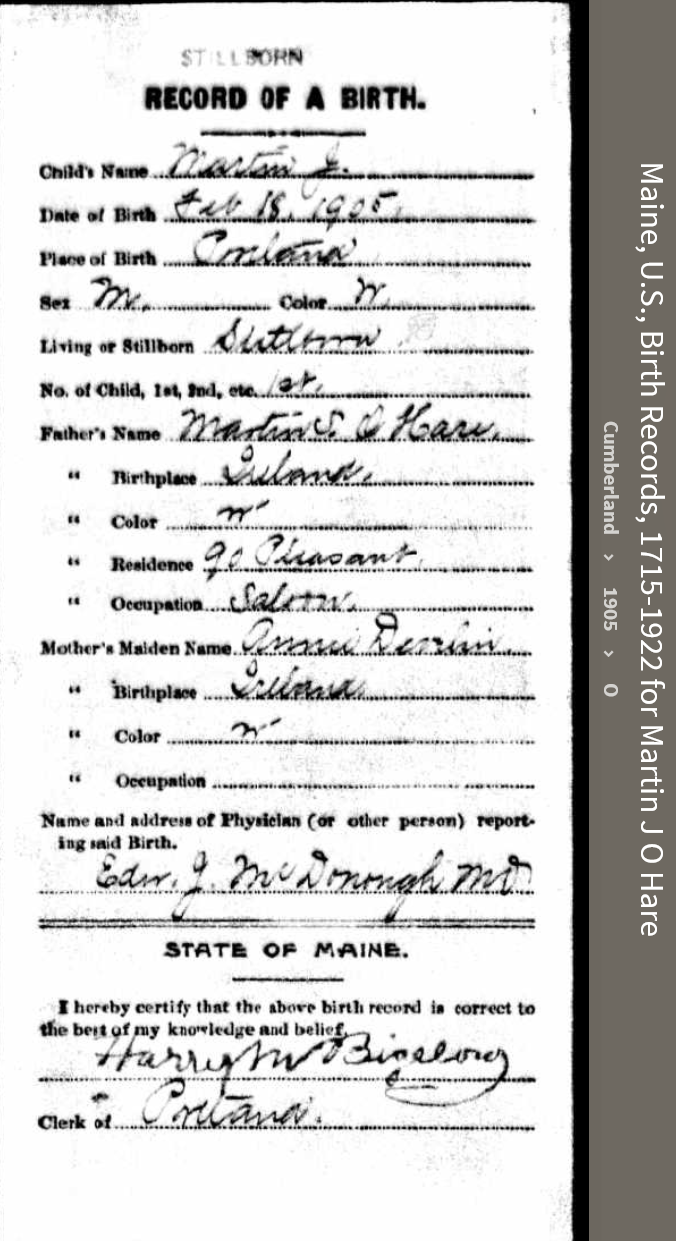 STILLBORN
RECORD OF A BIRTH.
Child's Name Martin J.
Date of Birth Feb 18, 1905.
Place of Birth Portland
Sex M. Color W.
Living or Stillborn Stillborn
No. of Child, 1st, 2nd, etc. 1st.
Father's Name Martin S. O Hare.
" Birthplace Ireland.
" Color W
" Residence 90 Pleasant.
" Occupation Saloon.
Mother's Maiden Name Annie Devlin
" Birthplace Ireland
" Color W
" Occupation
Name and address of Physician (or other person) report-
ing said Birth.
Edw. J. McDonough MD
STATE OF MAINE.
I hereby certify that the above birth record is correct to
the best of my knowledge and belief,
Harry M Bigelow
Clerk of Portland.
Maine, U.S., Birth Records, 1715-1922 for Martin J O Hare
Cumberland > 1905 > O